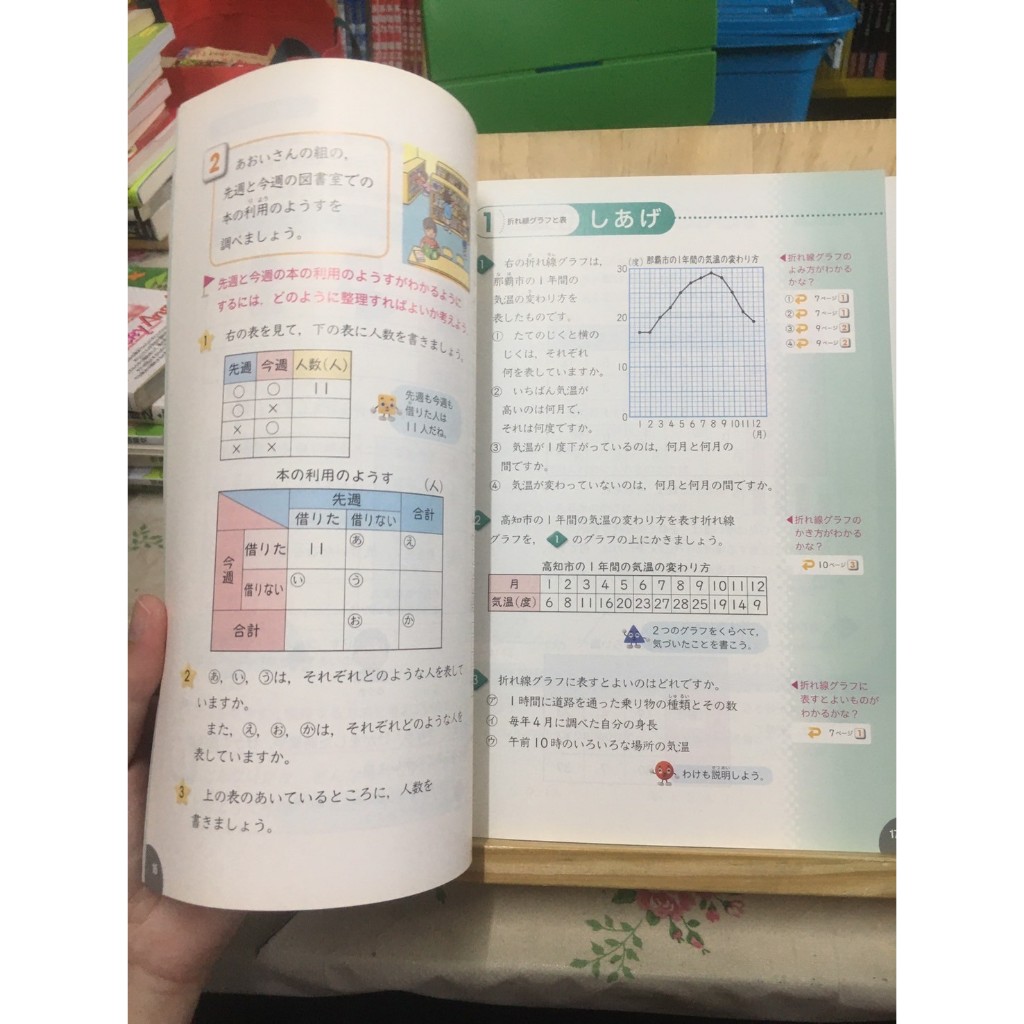 2
あおいさんの組の,
先週と今週の図書室での
本の利用のようすを
調べましょう。
先週と今週の本の利用のようすがわかるように
するには, どのように整理すればよいか考えよう。
1 右の表を見て, 下の表に人数を書きましょう。
先週 今週 人数(人)
○ ○ 11
○ ×
× ○
× ×
先週も今週も
借りた人は
11人だね。
本の利用のようす (人)
先週 合計
借りた 借りない
今週 借りた 11 あ え
借りない い う
合計 お か
2 あ, い, うは, それぞれどのような人を表して
いますか。
また, え, お, かは, それぞれどのような人を
表していますか。
3 上の表のあいているところに, 人数を
書きましょう。
16
1 折れ線グラフと表 しあげ
1 右の折れ線グラフは,
那覇市の1年間の
気温の変わり方を
表したものです。
① たてのじくと横の
じくは, それぞれ
何を表していますか。
② いちばん気温が
高いのは何月で,
それは何度ですか。
③ 気温が1度下がっているのは, 何月と何月の
間ですか。
④ 気温が変わっていないのは, 何月と何月の間ですか。
(度) 那覇市の1年間の気温の変わり方
30
20
10
0
1 2 3 4 5 6 7 8 9 10 11 12
(月)
折れ線グラフの
よみ方がわかる
かな?
① 7ページ 1
② 7ページ 1
③ 9ページ 2
④ 9ページ 2
2 高知市の1年間の気温の変わり方を表す折れ線
グラフを, 1 のグラフの上にかきましょう。
高知市の1年間の気温の変わり方
月 1 2 3 4 5 6 7 8 9 10 11 12
気温(度) 6 8 11 16 20 23 27 28 25 19 14 9
2つのグラフをくらべて,
気づいたことを書こう。
折れ線グラフの
かき方がわかる
かな?
10ページ 3
3 折れ線グラフに表すとよいのはどれですか。
ア 1時間に道路を通った乗り物の種類とその数
イ 毎年4月に調べた自分の身長
ウ 午前10時のいろいろな場所の気温
わけも説明しよう。
折れ線グラフに
表すとよいものが
わかるかな?
7ページ 1
17